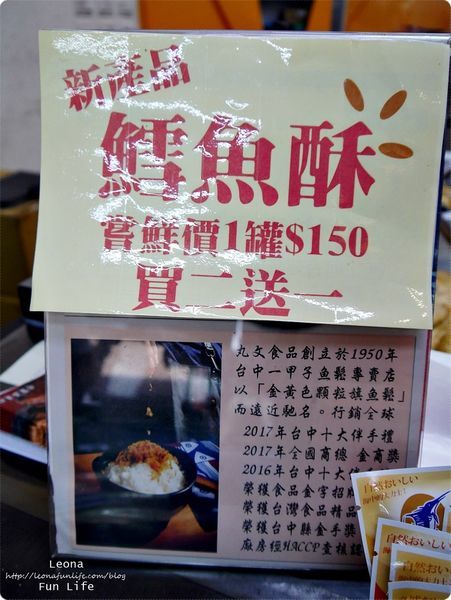 新產品
鱈魚酥
嘗鮮價1罐$150
買二送一
丸文食品創立於1950年
台中一甲子魚鬆專賣店
以「金黃色顆粒旗魚鬆」
而遠近馳名。行銷全球
2017年台中十大伴手禮
2017年全國商總 金商獎
2016年台中十大伴
榮獲食品金字招牌
榮獲台灣食品精品
榮獲台中縣金手獎
廠房經HACCP查核認
自然おいしい
自然おいしい
自然おいしい
Leona
http://leonafunlife.com/blog
Fun Life